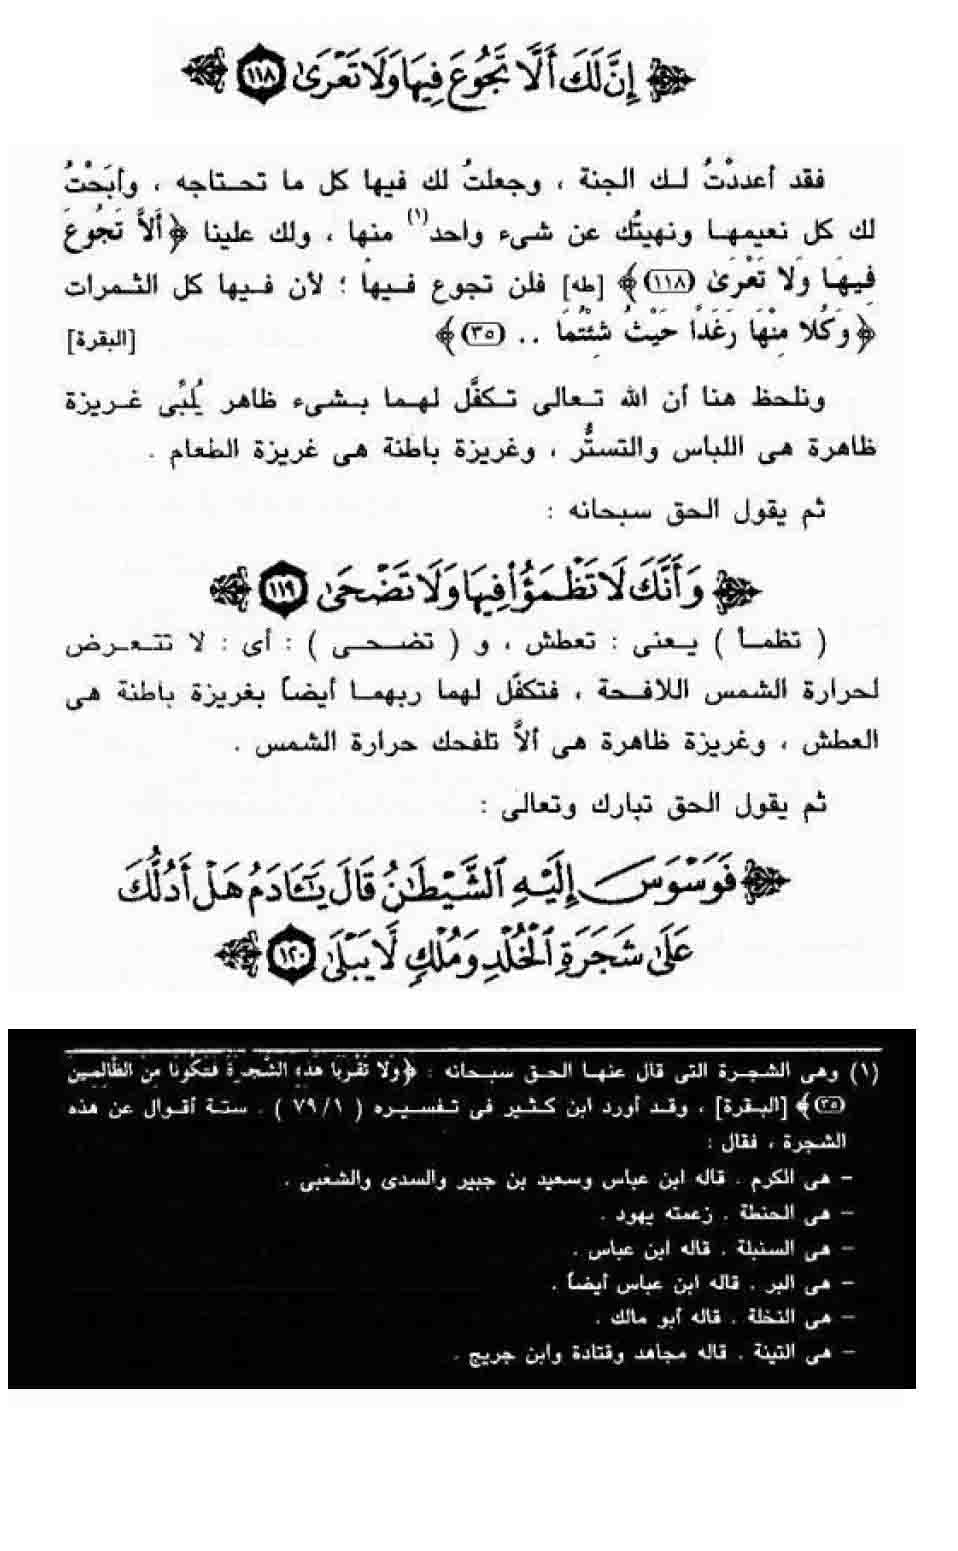 إِنَّ لَكَ أَلَّا تَجُوعَ فِيهَا وَلَا تَعْرَىٰ ١١٨
فقد أعددْتُ لـك الجنة ، وجعلتُ لك فيها كل ما تحـتاجه ، وأبَحْتُ
لك كل نعيمهـا ونهيتُك عن شىء واحد(١) منها ، ولك علينا ﴿ أَلاَّ تَجُوعَ
فِيهَا وَلا تَعْرَىٰ (١١٨) ﴾ [طه] فلن تجوع فـيها ؛ لأن فـيها كل الثـمرات
﴿ وَكُلا مِنْهَا رَغَدًا حَيْثُ شِئْتُمَا .. (٣٥) ﴾ [البقرة]
ونلحظ هنا أن الله تـعالى تـكفَّل لهـما بـشىء ظاهر يُلبِّى غـريزة
ظاهرة هى اللباس والتستُّر ، وغريزة باطنة هى غريزة الطعام .
ثم يقول الحق سبحانه :
وَأَنَّكَ لَا تَظْمَؤُا۟ فِيهَا وَلَا تَضْحَىٰ ١١٩
( تظمـأ ) يـعنى : تعطش ، و ( تضـحـى ) : أى : لا تتـعـرض
لحرارة الشمس اللافـحة ، فتكفَّل لهما ربهمـا أيضاً بغريزة باطنة هى
العطش ، وغريزة ظاهرة هى ألاَّ تلفحك حرارة الشمس .
ثم يقول الحق تبارك وتعالى :
فَوَسْوَسَ إِلَيْهِ ٱلشَّيْطَٰنُ قَالَ يَٰٓـَٔادَمُ هَلْ أَدُلُّكَ
عَلَىٰ شَجَرَةِ ٱلْخُلْدِ وَمُلْكٍ لَّا يَبْلَىٰ ١٢٠
(١) وهى الشجرة التى قال عنها الحق سبحانه : ﴿ وَلا تَقْرَبَا هَذِهِ الشَّجَرَةَ فَتَكُونَا مِنَ الظَّالِمِينَ
(٣٥) ﴾ [البقرة] ، وقـد أورد ابن كـثير فى تـفسـيره ( ١/ ٧٩ ) . ستـة أقـوال عن هذه
الشجرة ، فقال :
– هى الكرم . قاله ابن عباس وسعيد بن جبير والسدى والشعبى .
– هى الحنطة . زعمته يهود .
– هى السنبلة . قاله ابن عباس .
– هى البر . قاله ابن عباس أيضاً .
– هى النخلة . قاله أبو مالك .
– هى التينة . قاله مجاهد وقتادة وابن جريج .